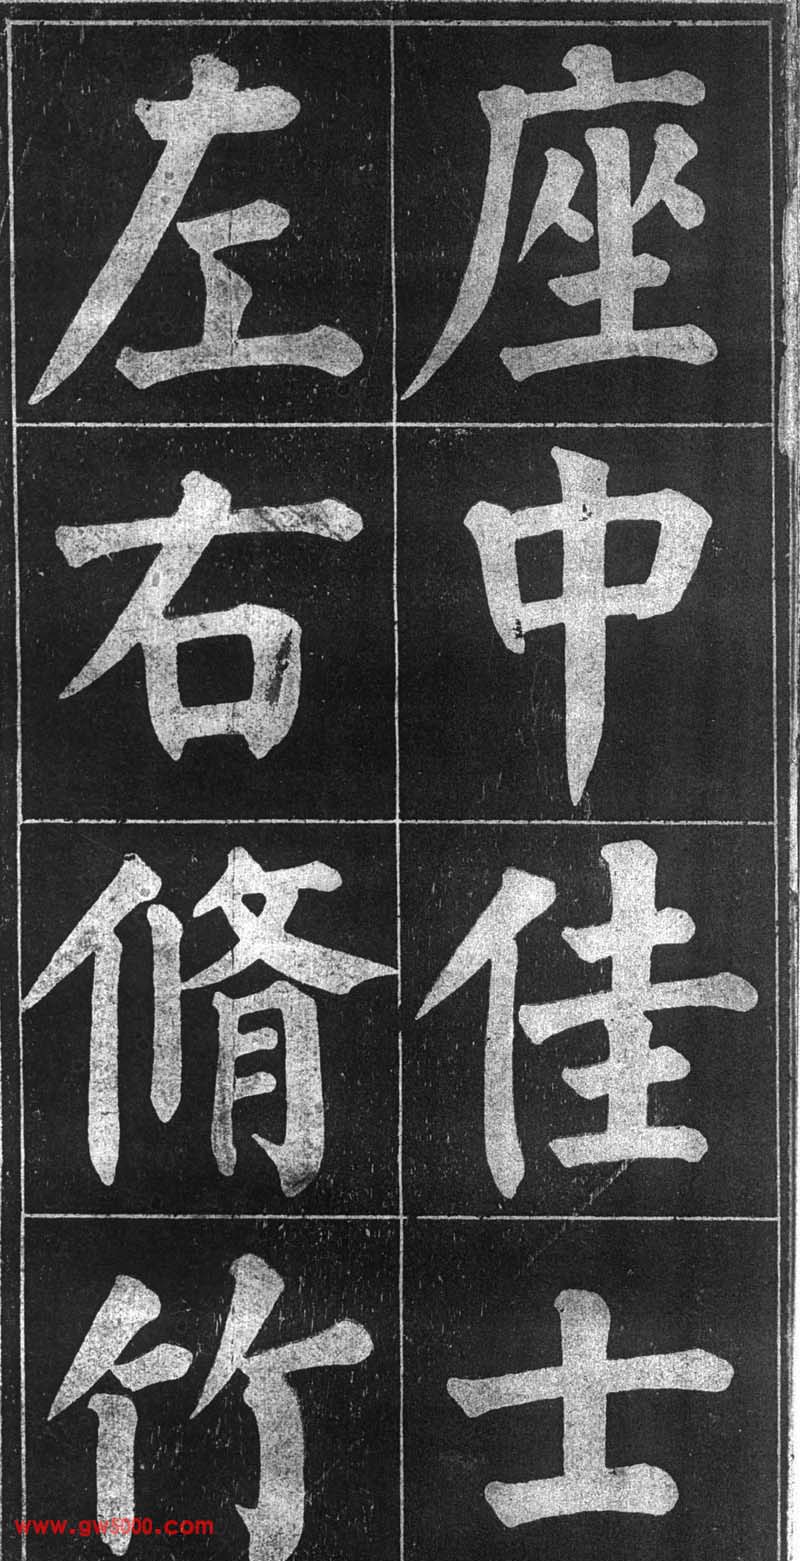 座中佳士
左右脩竹
www.gw5000.com